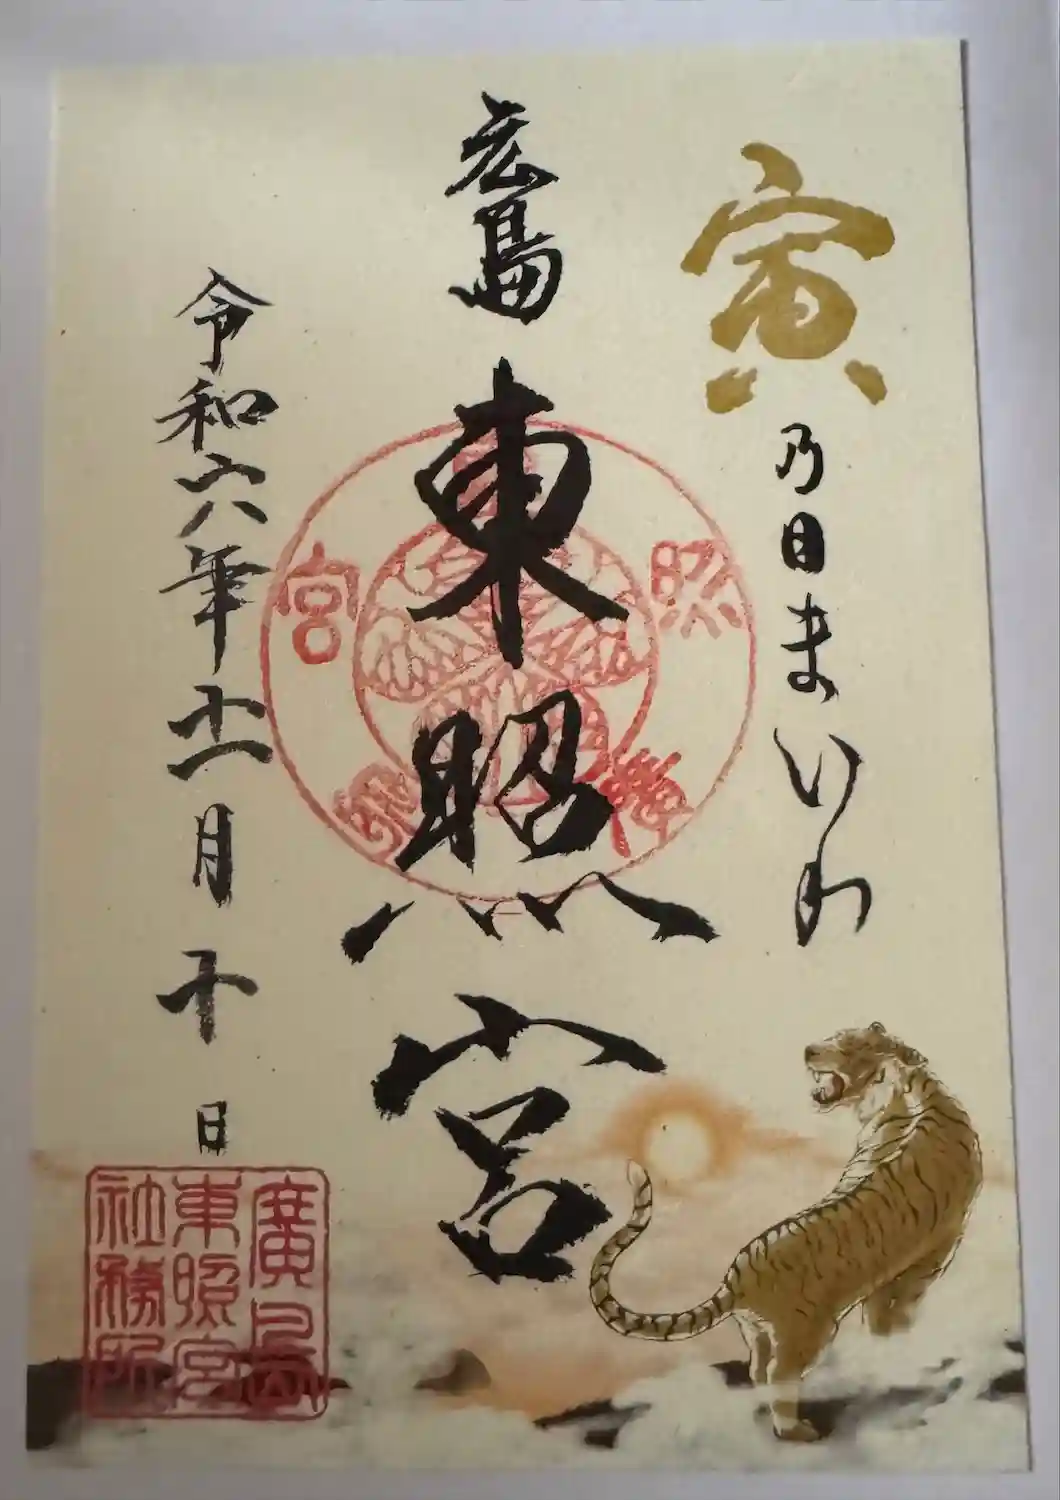 寅
乃日まいり
広島
東照宮
令和六年十一月十日
廣島
東照宮
社務所